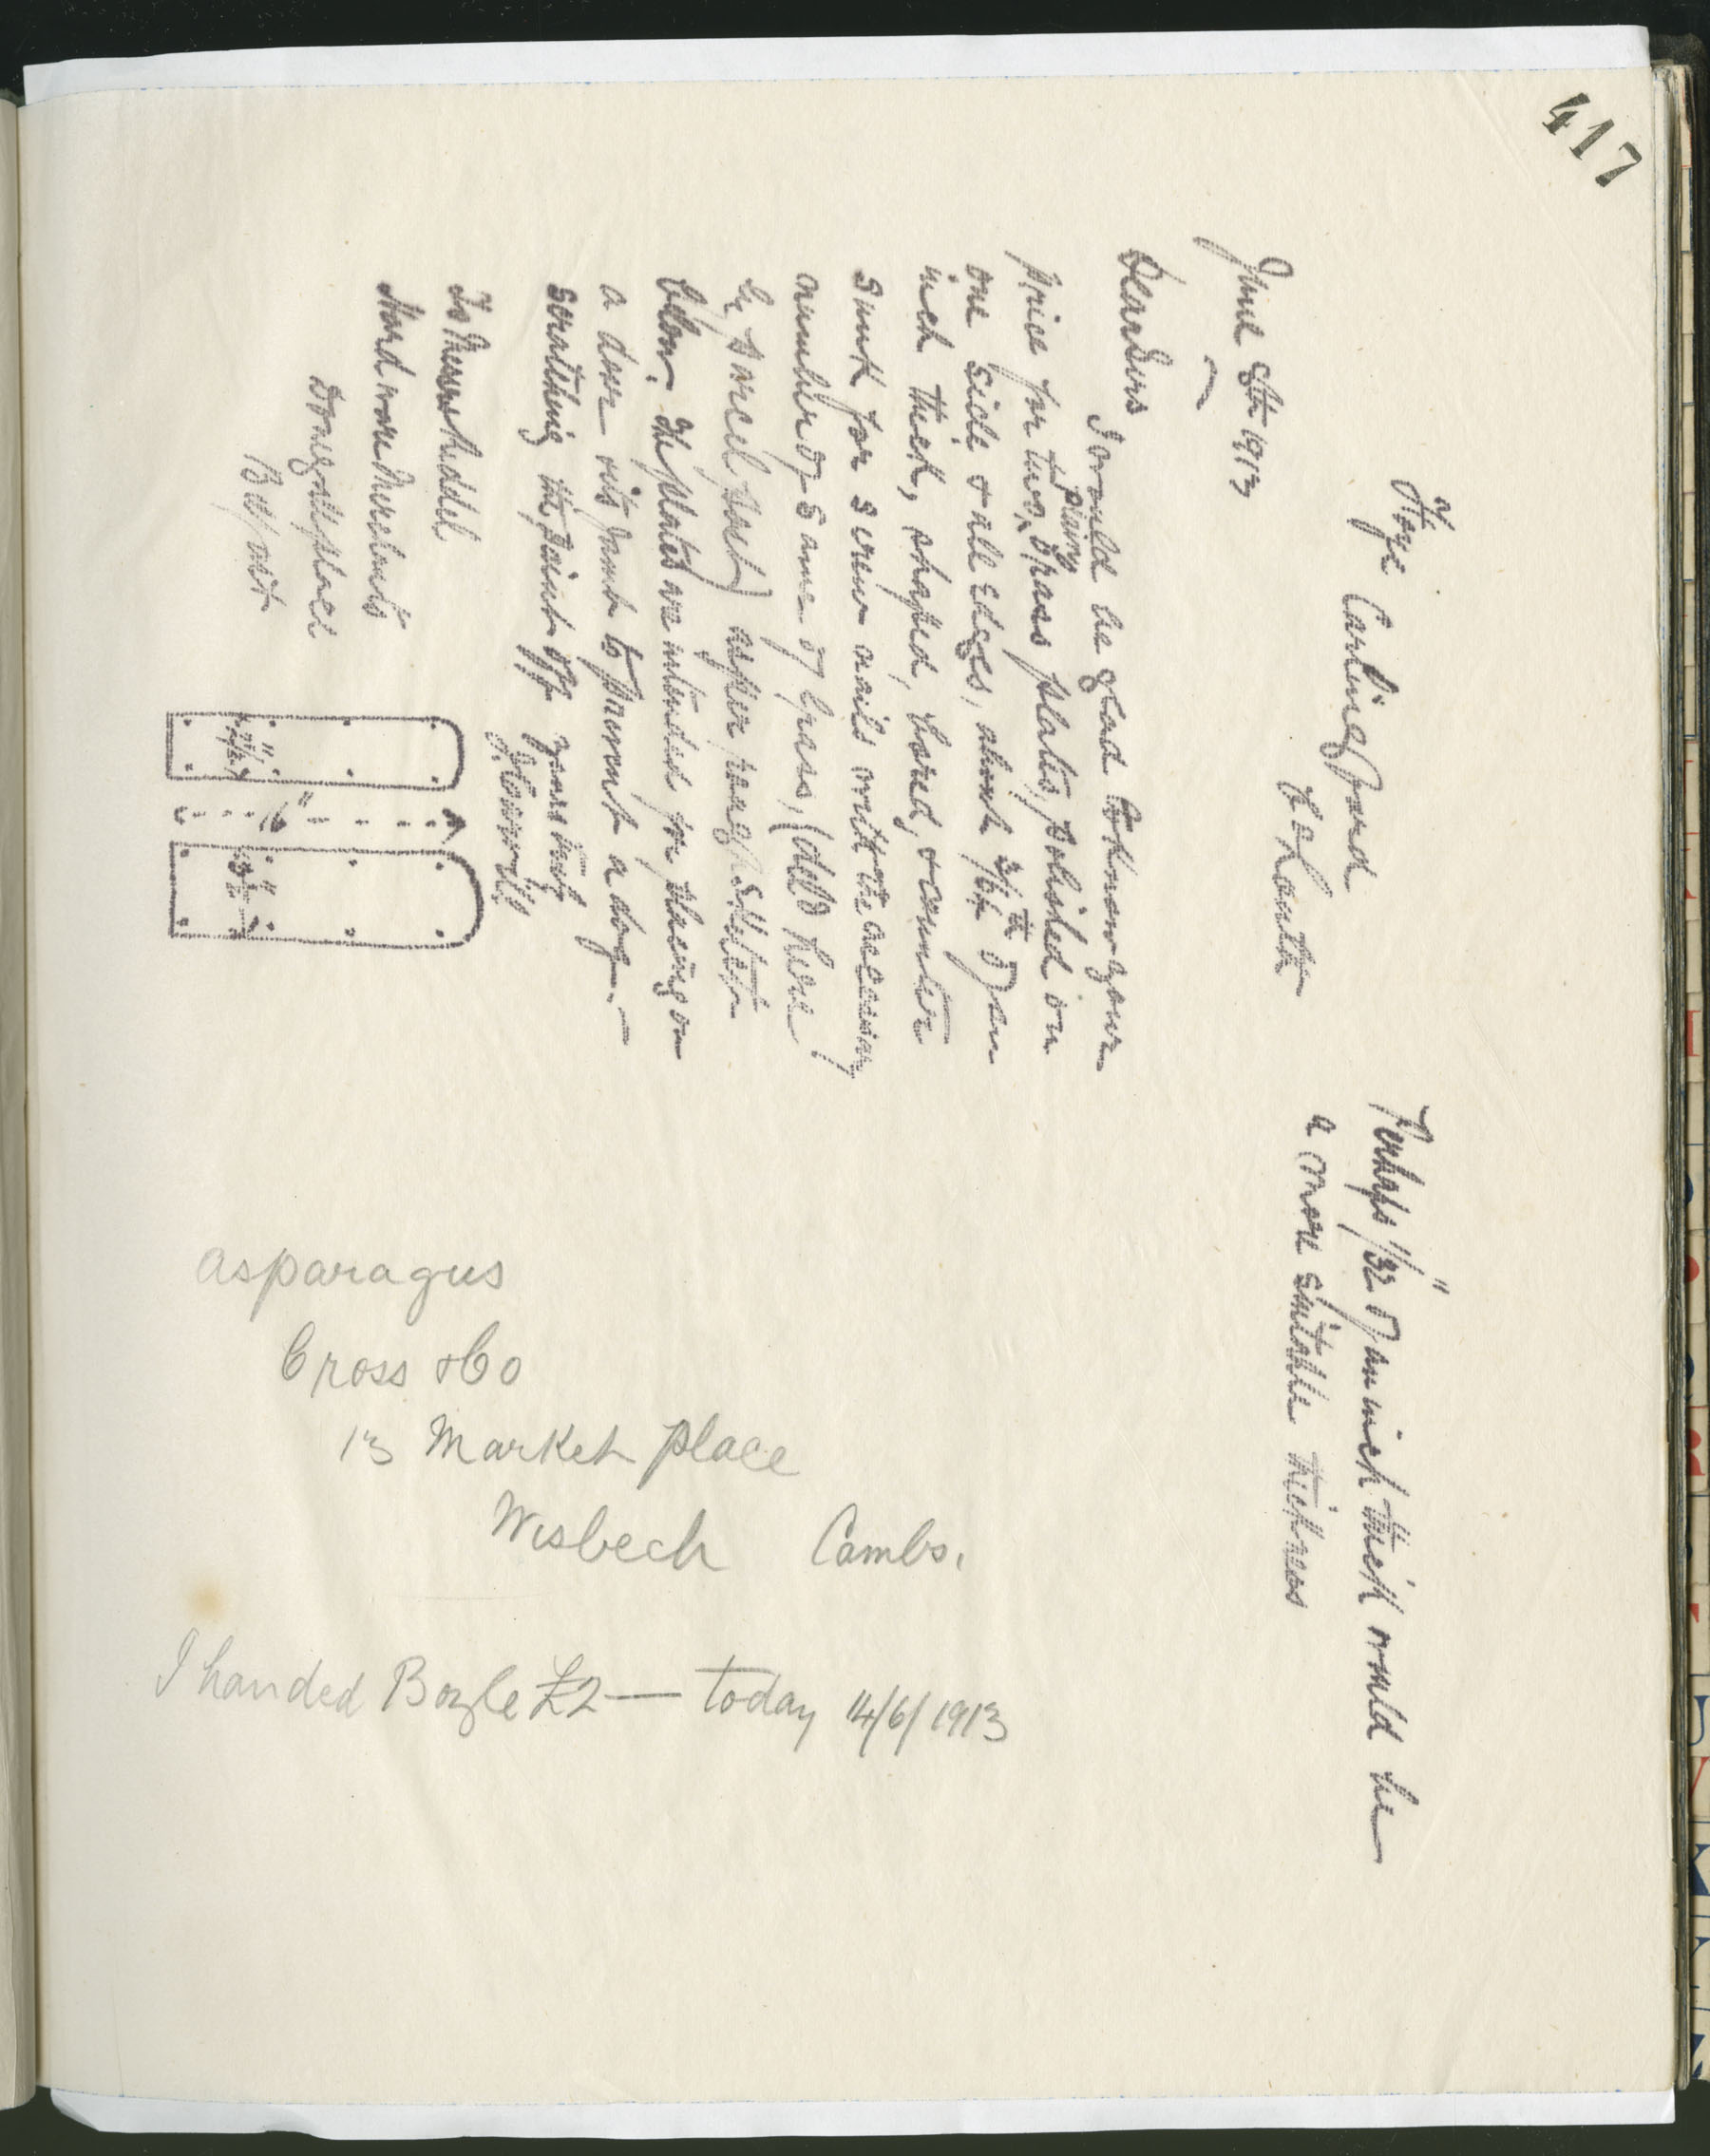 417
Carlingford
Co Louth
June 9th 1913
Dear Sirs
I would be glad to know your
price for two plain brass plates, polished on
one side & all edges, about 3/64th of an
inch thick, shaped, bored, & counter
sunk for screw nails with the necessary
number of same of brass, (deld here
by parcel post) as per rough sketch
below. The plates are intended for placing on
a door & its jamb to prevent a dog
scratching the paint off yours truly
To Messrs Riddel
Hardware Merchants
Donegall place
Belfast
2½"
6"
3½"
Perhaps 1/32" of an inch thick would be
a more suitable thickness
asparagus
Cross & Co
13 Market place
Wisbech Cambs.
I handed Boyle £2 — today 14/6/1913